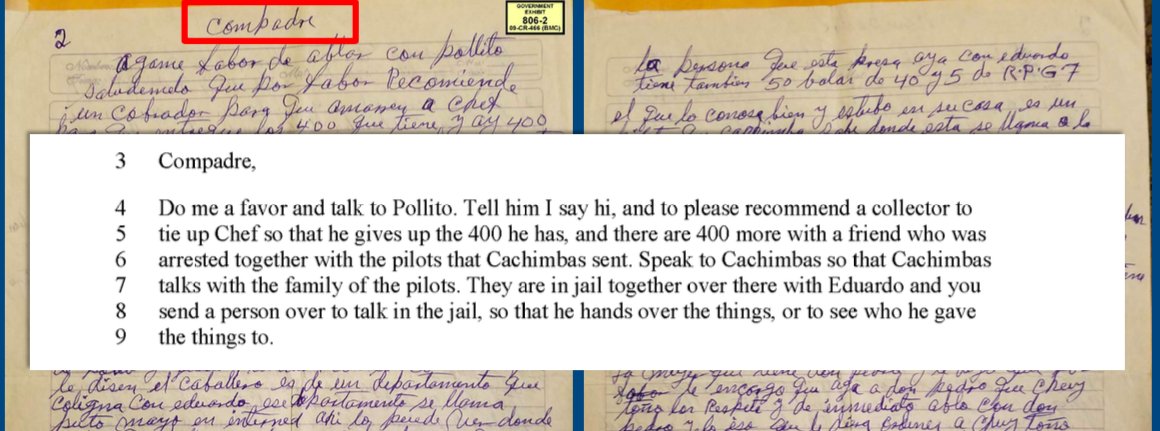 2
Compadre
GOVERNMENT
EXHIBIT
806-2
09-CR-466 (BMC)
agame fabor de ablar con pollito
saludemelo que por fabor Recomiende
un Cobrador para que amarren a chef
entregue los 400 que tiene, y ay 400
3 Compadre,
4 Do me a favor and talk to Pollito. Tell him I say hi, and to please recommend a collector to
5 tie up Chef so that he gives up the 400 he has, and there are 400 more with a friend who was
6 arrested together with the pilots that Cachimbas sent. Speak to Cachimbas so that Cachimbas
7 talks with the family of the pilots. They are in jail together over there with Eduardo and you
8 send a person over to talk in the jail, so that he hands over the things, or to see who he gave
9 the things to.
le disen el caballero es de un departamento que
coligna con eduardo, ese departamento se llama
puto mayo en interned ahi lo puede ver donde
la persona que esta presa aya con eduardo
tiene tambien 50 balas de 40 y 5 de R.P.G 7
el que lo conose bien y estubo en su casa, es un
donde esta se llama a la
le encargo que aga a don pedro que chuy
toño los Respete y de inmediato ablo con don
pedro y lo eso que le diera ordenes a chuy toño